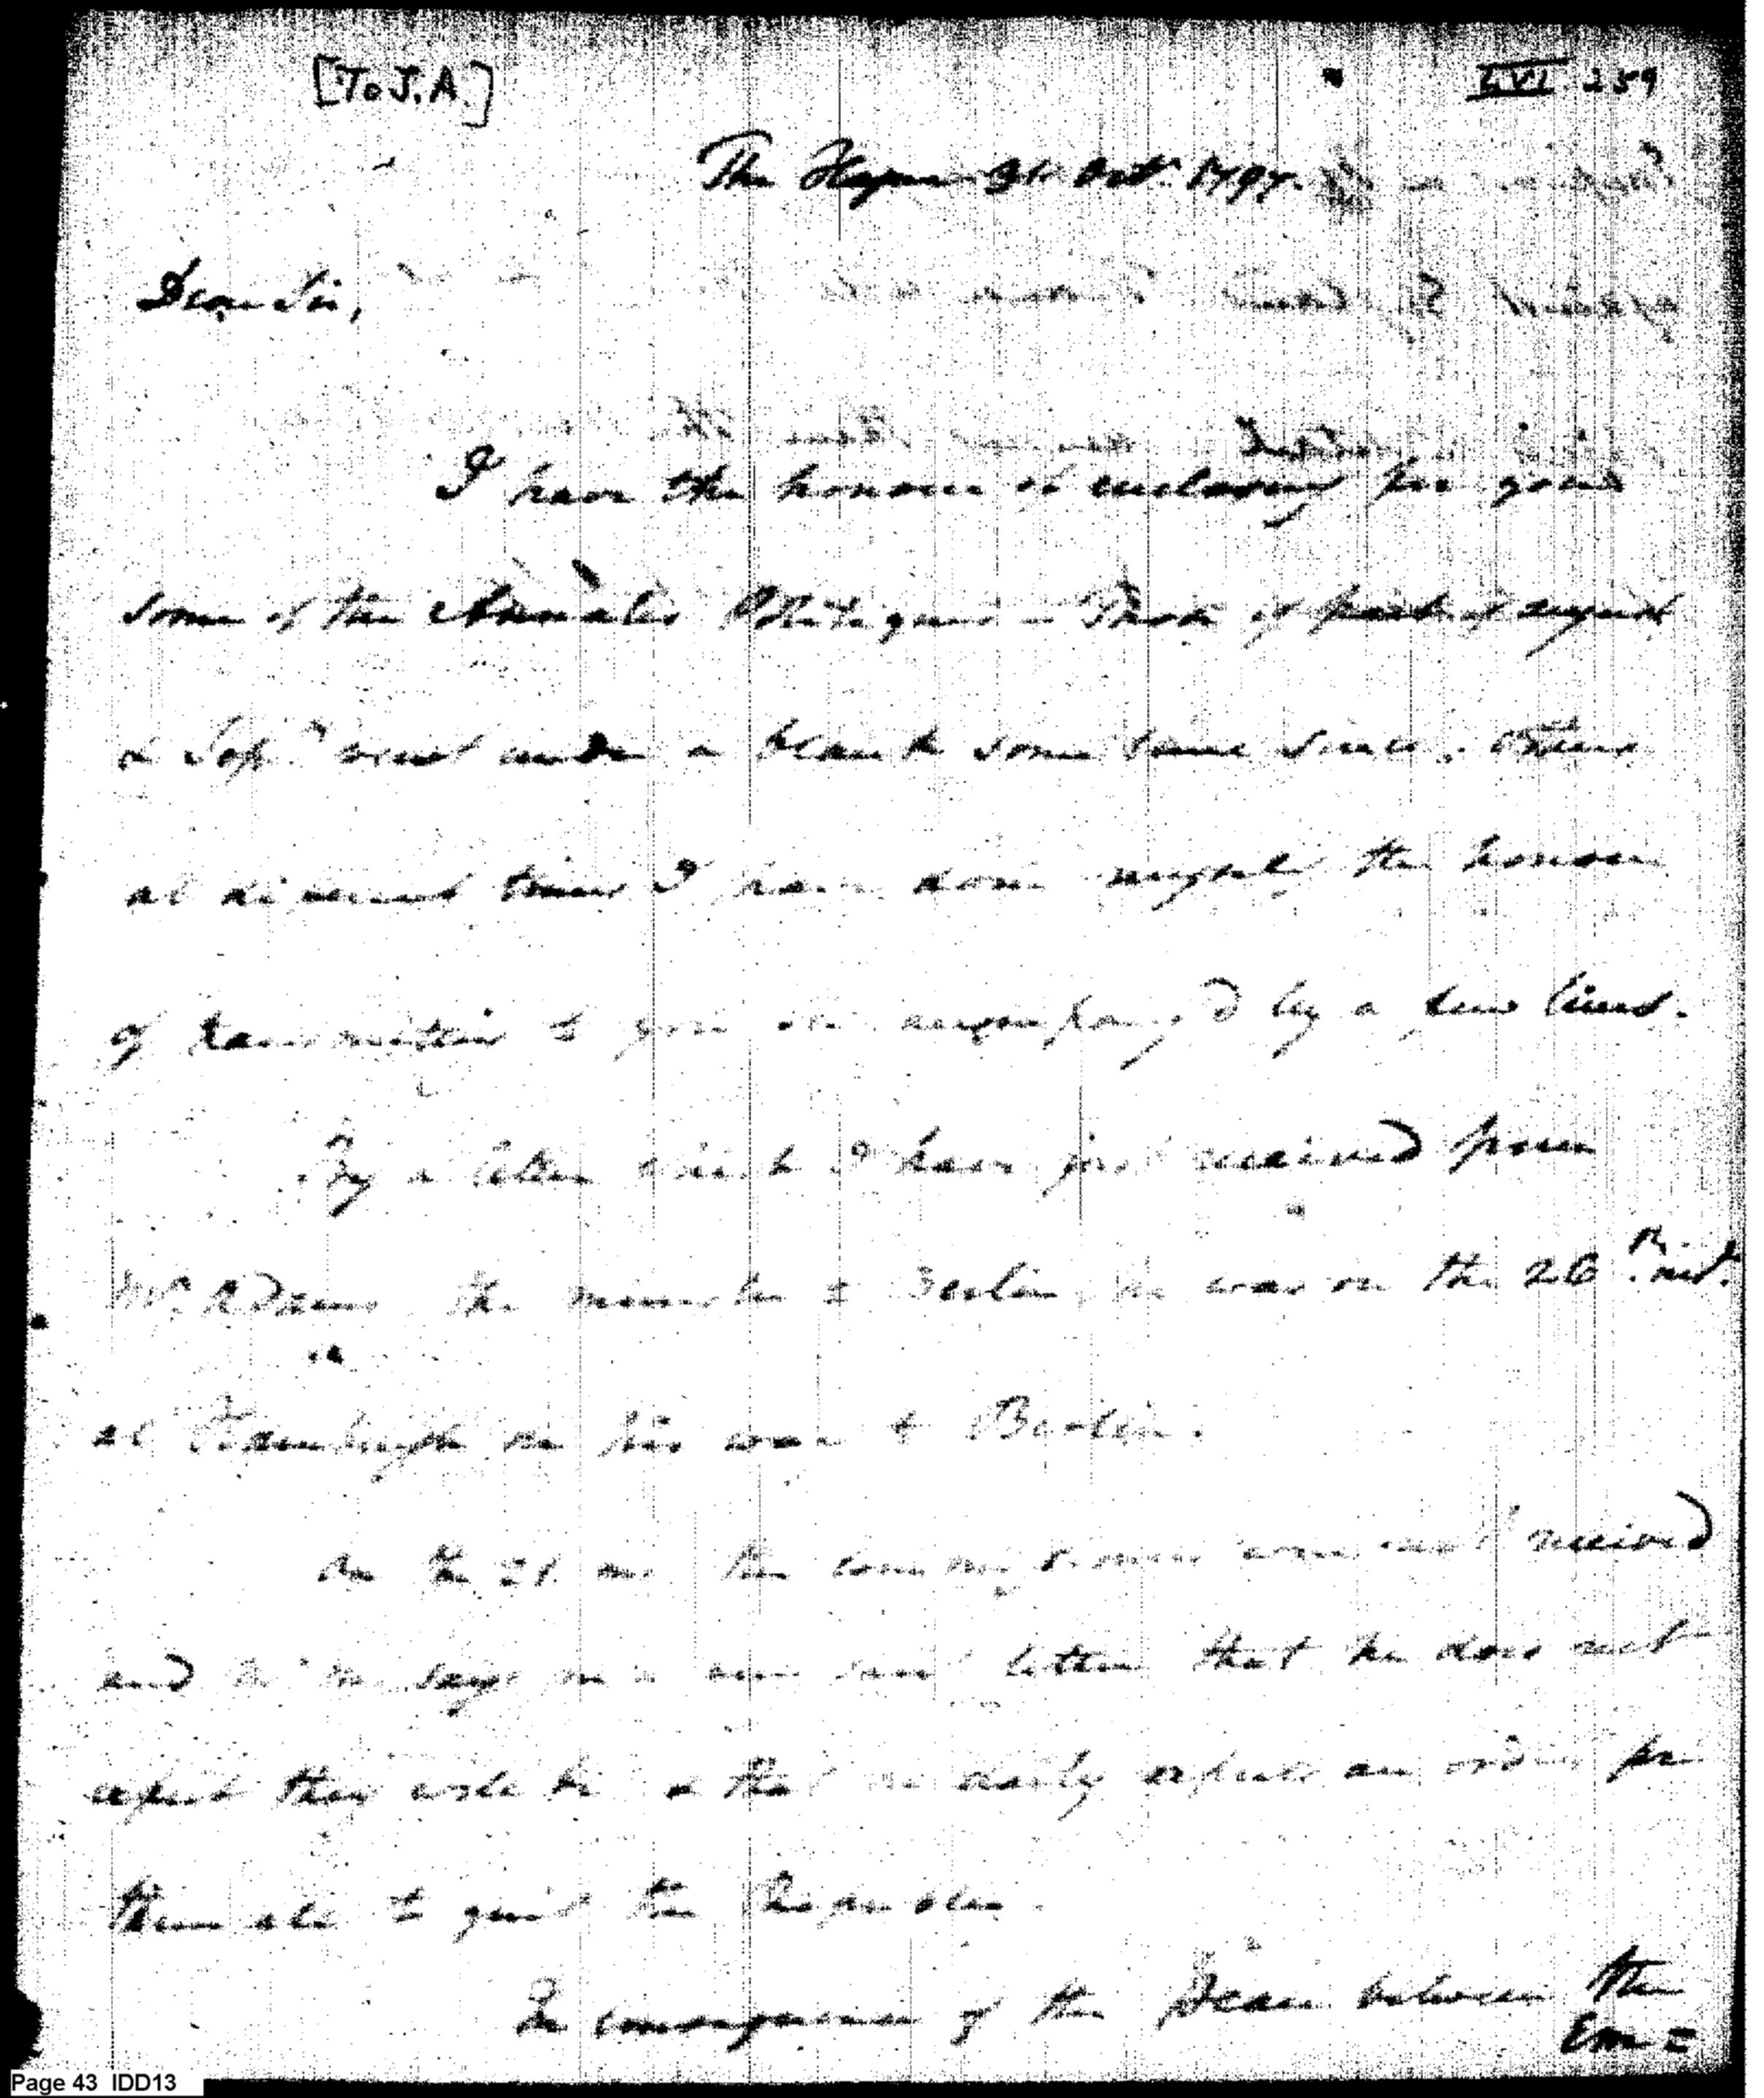 [To J.A.]
LVI. 259
The Hague 31 Oct. 1797.
Dear Sir,
I have the honour of enclosing for your
some of the Annales Politiques — Those of part of August
& Sept. went under a blank some time since. Others
at different times I have done myself the honour
of transmitting to you accompany'd by a few lines.
By a letter which I have just received from
Mr. Adams the minister to Berlin, he was on the 26th. inst.
at Hamburgh on his way to Berlin.
On the 21 the Commissioners were not received
and says in a letter that he does not
expect they will be & that he daily expects an order for
them all to quit the Republic.
In consequence of the Peace between the
Em=
Page 43 IDD13